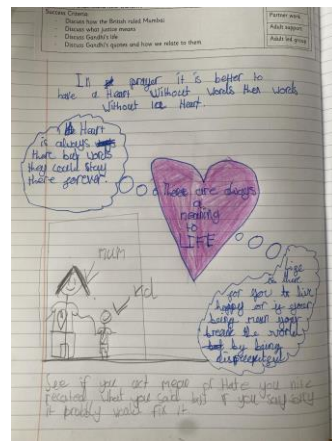 Success Criteria:
Discuss how the British ruled Mumbai
Discuss what justice means
Discuss Gandhi's life
Discuss Gandhi's quotes and how we relate to them
Partner work
Adult support
Adult led group
In prayer it is better to
have a Heart Without words then words
Without Heart.
Heart
is always
there but words
they could stay
there forever.
There are always
a
meaning
to
LIFE
MUM
kid
life
is
for you to live
happy or is your
being mean your
break the world
by being
disrespectful
See if you act mean or Hate you
what you said but if you say sorry
it probly would fix it